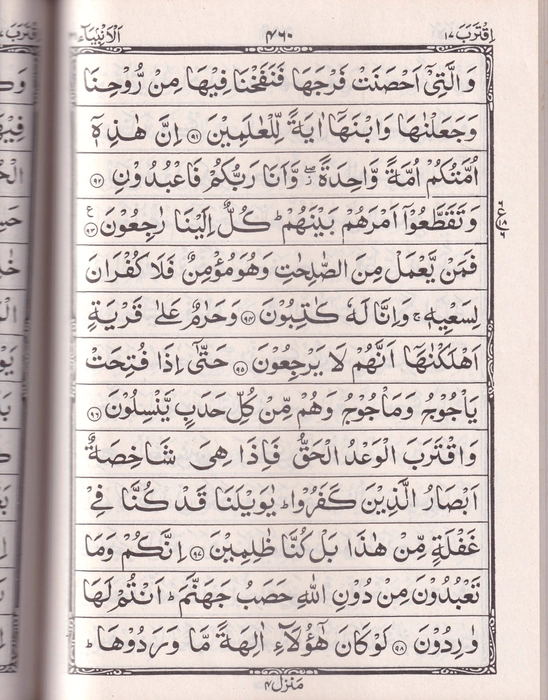 اِقْتَرَبَ ١٧ ٤٦٠ اَلْاَنْبِيَآء
وَالَّتِيْٓ اَحْصَنَتْ فَرْجَهَا فَنَفَخْنَا فِيْهَا مِنْ رُّوْحِنَا
وَجَعَلْنٰهَا وَابْنَهَآ اٰيَةً لِّلْعٰلَمِيْنَ ﴿٩١﴾ اِنَّ هٰذِهٖٓ
اُمَّتُكُمْ اُمَّةً وَّاحِدَةً ۖ وَّاَنَا رَبُّكُمْ فَاعْبُدُوْنِ ﴿٩٢﴾
وَتَقَطَّعُوْٓا اَمْرَهُمْ بَيْنَهُمْ ؕ كُلٌّ اِلَيْنَا رٰجِعُوْنَ ﴿٩٣﴾ ع
فَمَنْ يَّعْمَلْ مِنَ الصّٰلِحٰتِ وَهُوَ مُؤْمِنٌ فَلَا كُفْرَانَ
لِسَعْيِهٖ ۚ وَاِنَّا لَهٗ كٰتِبُوْنَ ﴿٩٤﴾ وَحَرٰمٌ عَلٰى قَرْيَةٍ
اَهْلَكْنٰهَآ اَنَّهُمْ لَا يَرْجِعُوْنَ ﴿٩٥﴾ حَتّٰٓى اِذَا فُتِحَتْ
يَاْجُوْجُ وَمَاْجُوْجُ وَهُمْ مِّنْ كُلِّ حَدَبٍ يَّنْسِلُوْنَ ﴿٩٦﴾
وَاقْتَرَبَ الْوَعْدُ الْحَقُّ فَاِذَا هِىَ شَاخِصَةٌ
اَبْصَارُ الَّذِيْنَ كَفَرُوْا ؕ يٰوَيْلَنَا قَدْ كُنَّا فِيْ
غَفْلَةٍ مِّنْ هٰذَا بَلْ كُنَّا ظٰلِمِيْنَ ﴿٩٧﴾ اِنَّكُمْ وَمَا
تَعْبُدُوْنَ مِنْ دُوْنِ اللّٰهِ حَصَبُ جَهَنَّمَ ؕ اَنْتُمْ لَهَا
وٰرِدُوْنَ ﴿٩٨﴾ لَوْ كَانَ هٰٓؤُلَآءِ اٰلِهَةً مَّا وَرَدُوْهَا ؕ
مَنْزِل ٤